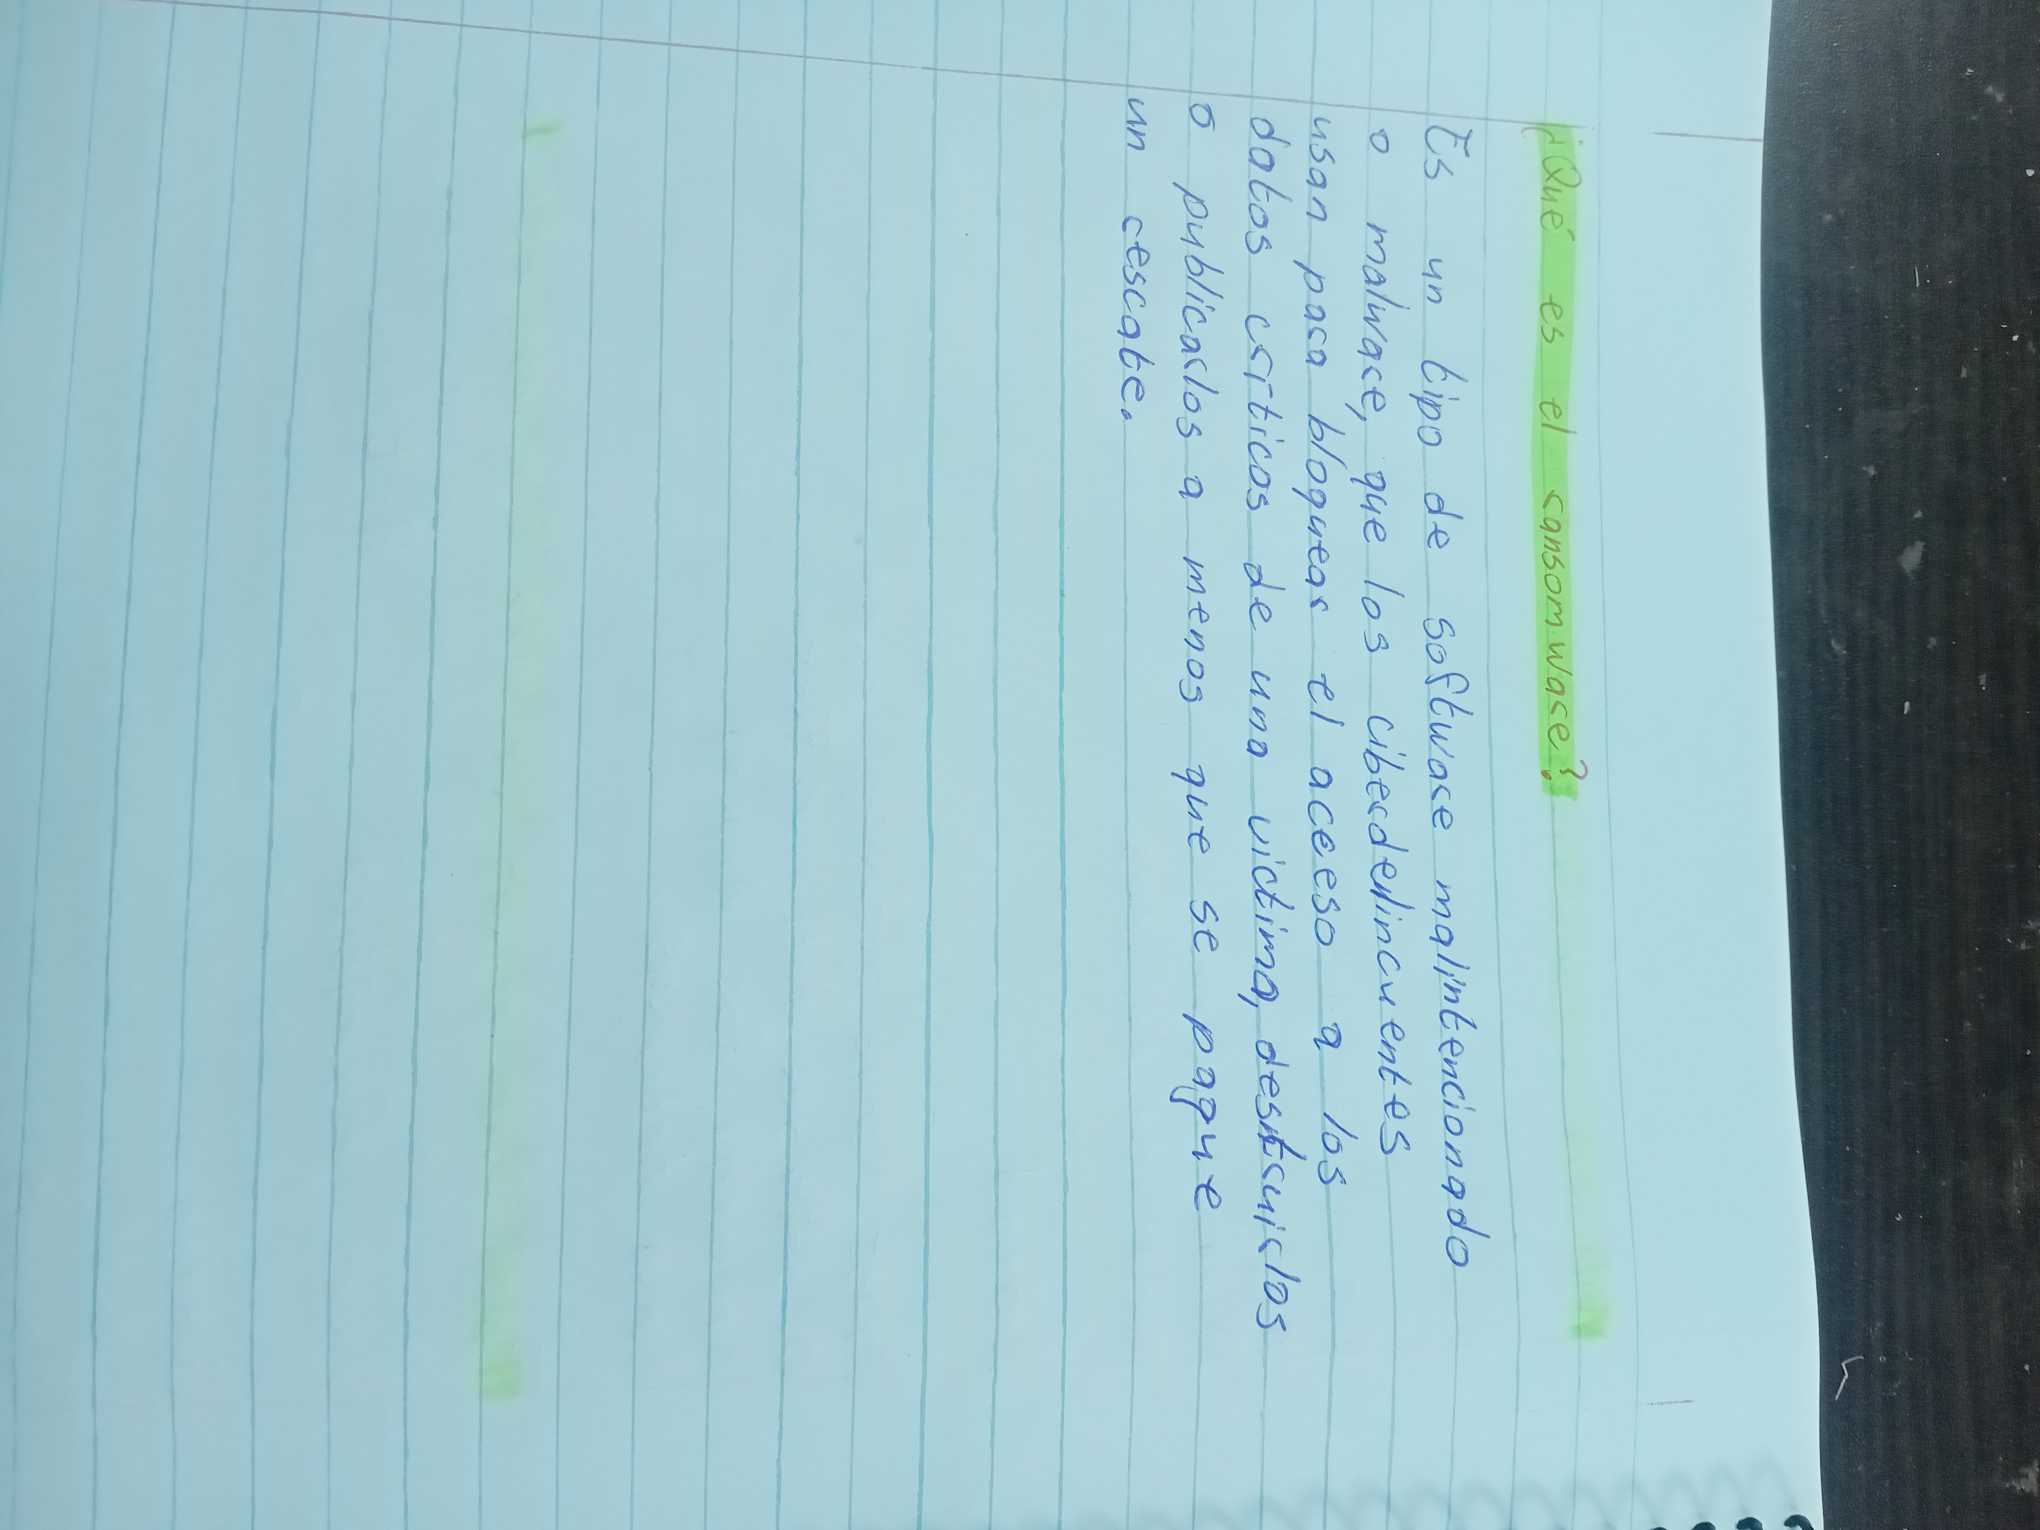 ¿Qué es el ransomware?
Es un tipo de software malintencionado
o malware, que los ciberdelincuentes
usan para bloquear el acceso a los
datos críticos de una victima, destruirlos
o publicarlos a menos que se pague
un rescate.